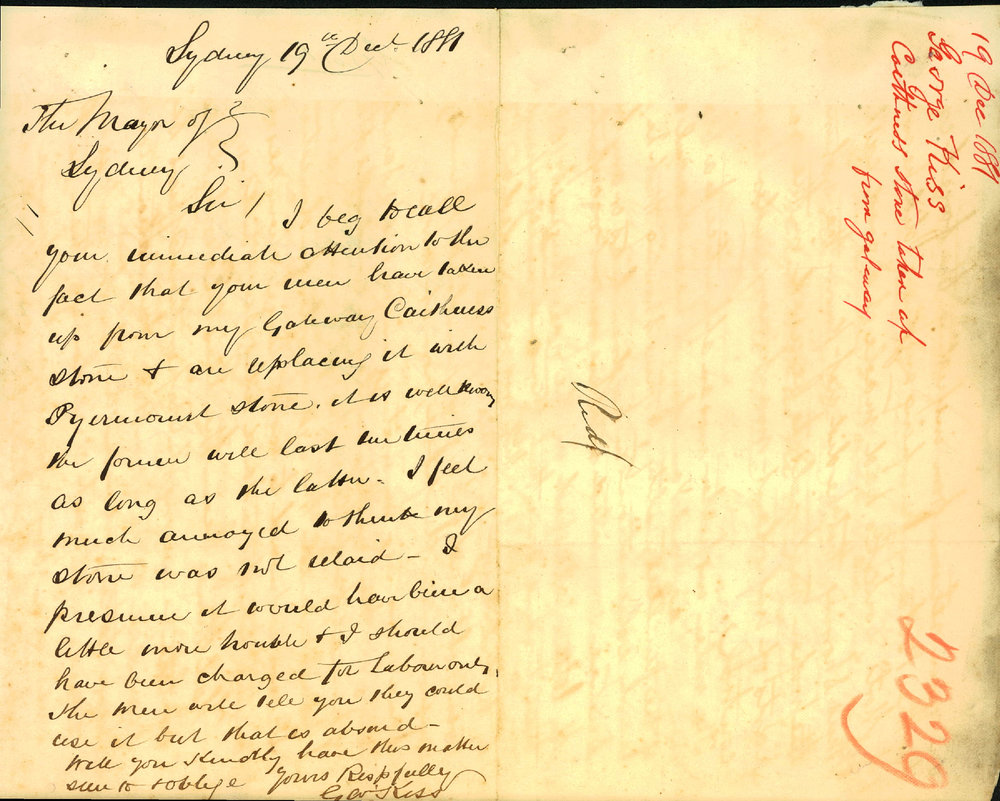 Sydney 19th Decr 1881
The Mayor of
Sydney
Sir / I beg to call
your immediate attention to the
fact that your men have taken
up from my Gateway Caithness
stone & are replacing it with
Pyermount stone. it is well known
the former will last ten times
as long as the latter. I feel
much annoyed to think my
stone was not relaid - I
presume it would have been a
little more trouble & I should
have been charged for Labour only.
The men will tell you they could
use it but that is absurd -
Will you Kindly have this matter
seen to & oblige Yours Respfully
Geo Kiss
19 Dec 1881
George Kiss
Caithness stone taken up
from gateway
2329